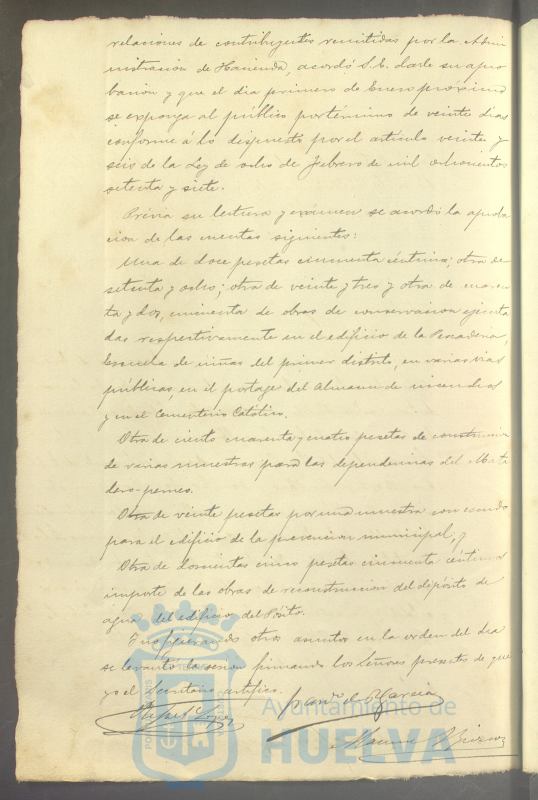 relaciones de contribuyentes remitidas por la Admi
nistracion de Hacienda, acordó S.E. darle su apro
bacion y que el dia primero de Enero próximo
se exponga al público por término de veinte dias
conforme á lo dispuesto por el artículo veinte y
seis de la Ley de ocho de Febrero de mil ochocientos
setenta y siete.
Prévia su lectura y exámen se acordó la aproba
cion de las cuentas siguientes:
Una de doce pesetas cincuenta céntimos; otra de
setenta y ocho; otra de veinte y tres y otra de cuaren
ta y dos, de obras de conservacion ejecuta
das respectivamente en el edificio de la Pescaderia,
Escuela de niñas del primer distrito, en varias vias
públicas, en el portage del Almacen de incendios
y en el Cementerio Católico.
Otra de ciento cuarenta y cuatro pesetas de construccion
de varias muestras para las dependencias del Mata
dero
Otra de veinte pesetas por una muestra con escudo
para el edificio de la prevencion municipal, y
Otra de doscientas cinco pesetas cincuenta céntimos
importe de las obras de reconstruccion del depósito de
agua del edificio del Pósito.
Y no figurando otros asuntos en la orden del dia
se levantó la sesion firmando los Señores presentes de que
yo el Secretario certifico.
Garcia
Lopez
Manuel
Ayuntamiento de
HUELVA